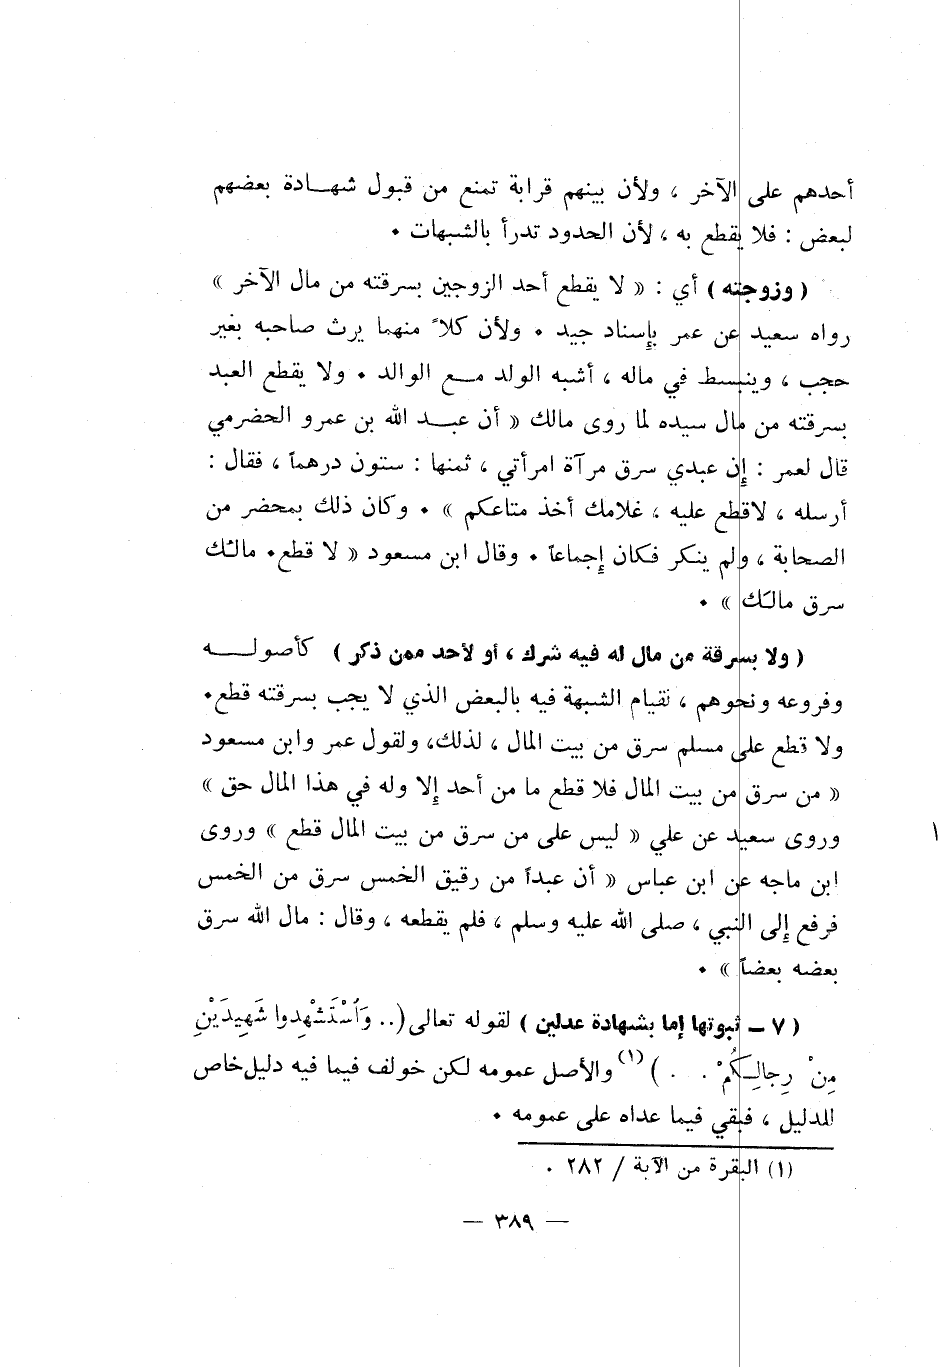 أحدهم على الآخر ، ولأن بينهم قرابة تمنع من قبول شهــادة بعضهم
لبعض : فلا يقطع به ، لأن الحدود تدرأ بالشبهات .
( وزوجته ) أي : « لا يقطع أحد الزوجين بسرقته من مال الآخر »
رواه سعيد عن عمر بإسناد جيد . ولأن كلاً منهما يرث صاحبه بغير
حجب ، وينبسط في ماله ، أشبه الولد مـع الوالد . ولا يقطع العبد
بسرقته من مال سيده لما روى مالك « أن عبـد الله بن عمرو الحضرمي
قال لعمر : إن عبدي سرق مرآة امرأتي ، ثمنها : ستون درهماً ، فقال :
أرسله ، لاقطع عليه ، غلامك أخذ متاعكم » . وكان ذلك بمحضر من
الصحابة ، ولم ينكر فكان إجماعاً . وقال ابن مسعود « لا قطع . مالك
سرق مالك » .
( ولا بسرقة من مال له فيه شرك ، أو لأحد ممن ذكر ) كأصولــه
وفروعه ونحوهم ، لقيام الشبهة فيه بالبعض الذي لا يجب بسرقته قطع .
ولا قطع على مسلم سرق من بيت المال ، لذلك، ولقول عمر وابن مسعود
« من سرق من بيت المال فلا قطع ما من أحد إلا وله في هذا المال حق »
وروى سعيد عن علي « ليس على من سرق من بيت المال قطع » وروى
ابن ماجه عن ابن عباس « أن عبداً من رقيق الخمس سرق من الخمس
فرفع إلى النبي ، صلى الله عليه وسلم ، فلم يقطعه ، وقال : مال الله سرق
بعضه بعضاً » .
( ٧ – ثبوتها إما بشهادة عدلين ) لقوله تعالى (.. وَٱسْتَشْهِدوا شَهِيدَيْنِ
مِنْ رِجالِـكُمْ . . . )(١) والأصل عمومه لكن خولف فيما فيه دليل خاص
للدليل ، فبقي فيما عداه على عمومه .
(١) البقرة من الآبة / ٢٨٢ .
— ٣٨٩ —